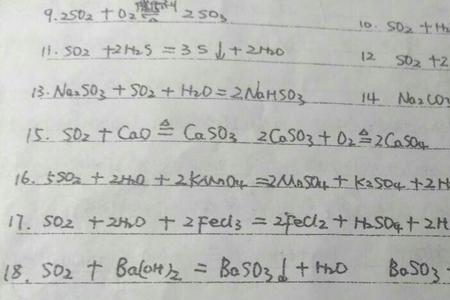 9. 2SO₂ + O₂ ⇌ 2SO₃ 10. SO₂ + H₂
11. SO₂ + 2H₂S = 3S↓ + 2H₂O 12 SO₂ + 2
13. Na₂SO₃ + SO₂ + H₂O = 2NaHSO₃ 14 Na₂CO
15. SO₂ + CaO ≜ CaSO₃ 2CaSO₃ + O₂ ≜ 2CaSO₄
16. 5SO₂ + 2H₂O + 2KMnO₄ = 2MnSO₄ + K₂SO₄ + 2H
17. SO₂ + 2H₂O + 2FeCl₃ = 2FeCl₂ + H₂SO₄ + 2H
18. SO₂ + Ba(OH)₂ = BaSO₃↓ + H₂O BaSO₃